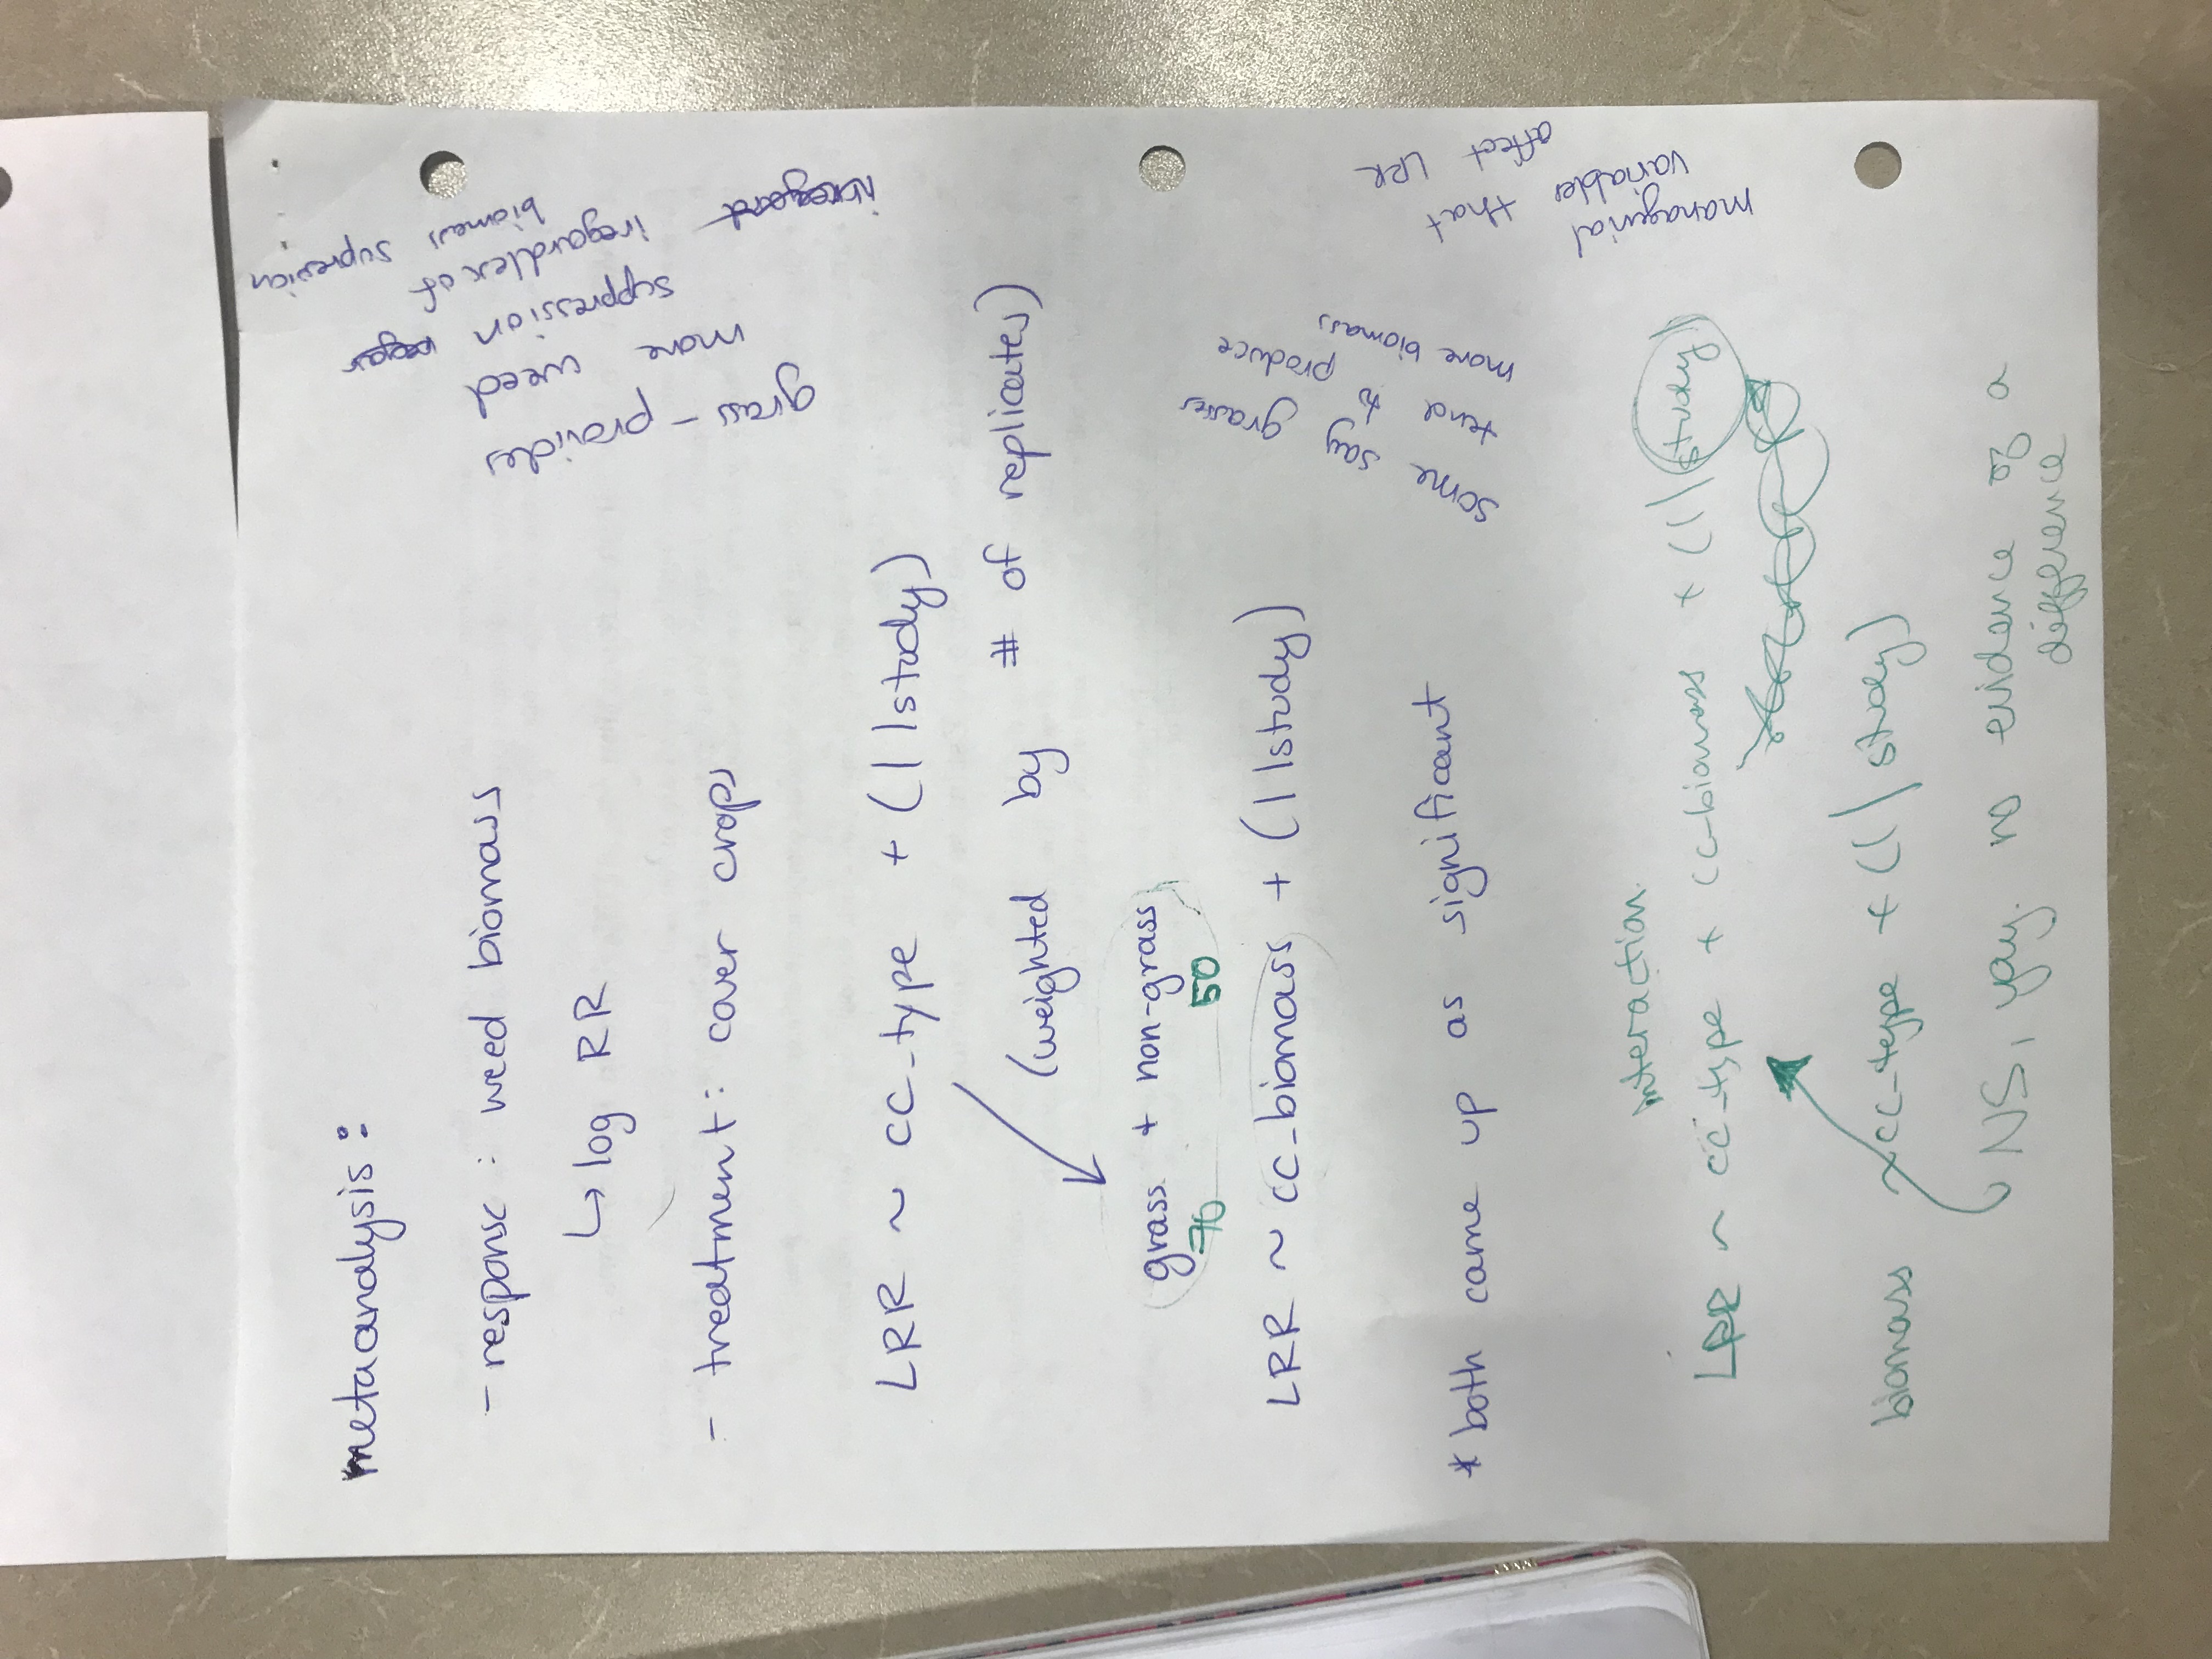 metaanalysis:
- response: weed biomass
↳ log RR
- treatment: cover crops
LRR ~ cc_type + (1|study)
(weighted by # of replicates)
grass + non-grass
70 50
LRR ~ cc_biomass + (1|study)
* both came up as significant
interaction
LRR ~ cc_type * cc_biomass + (1|study)
biomass ~ cc_type + (1|study)
NS, yay. no evidence of a
difference
grass - provides
more weed
suppression
irregardless of
biomass supression
some say grasses
tend to produce
more biomass
managerial
variables that
affect LRR